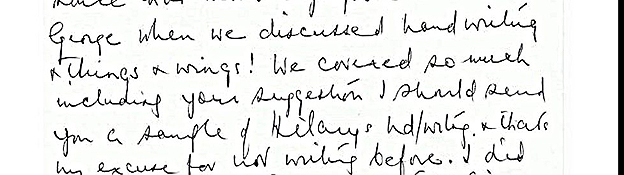 George when we discussed handwriting
& things & wings! We covered so much
including your suggestion I should send
you a sample of Hilarys hd/writg. & thats
my excuse for not writing before. I did